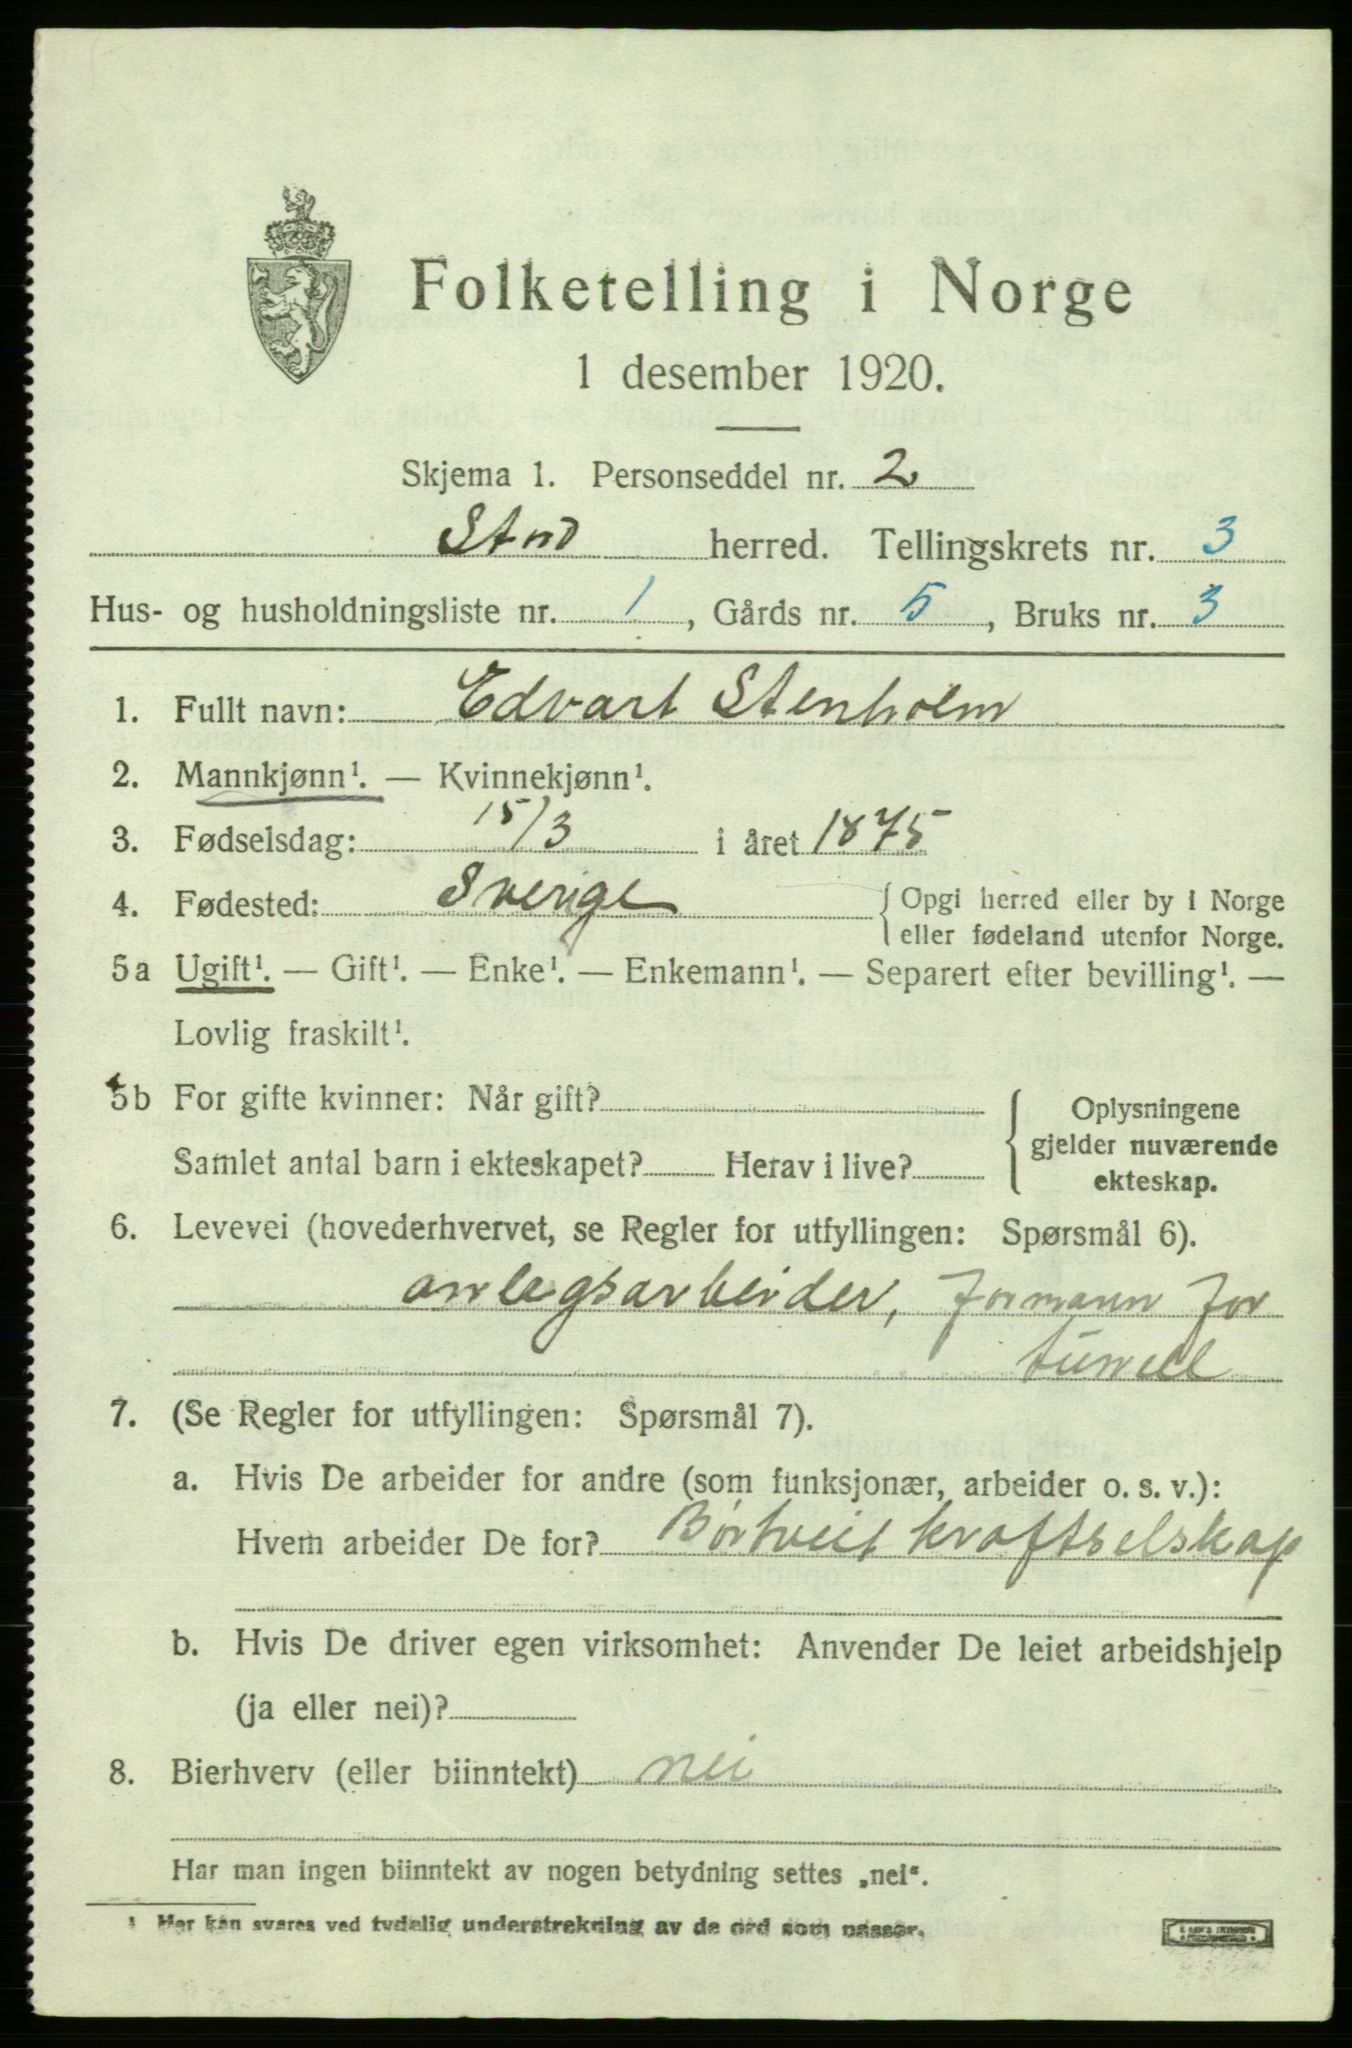 Folketelling i Norge
1 desember 1920.
Skjema 1. Personseddel nr. 2
Stord herred. Tellingskrets nr. 3
Hus- og husholdningsliste nr. 1, Gårds nr. 5, Bruks nr. 3
1. Fullt navn: Edvart Stenholm
2. Mannkjønn¹. — Kvinnekjønn¹.
3. Fødselsdag: 15/3 i året 1875
4. Fødested: Sverige { Opgi herred eller by i Norge
eller fødeland utenfor Norge.
5a Ugift¹. — Gift¹. — Enke¹. — Enkemann¹. — Separert efter bevilling¹. —
Lovlig fraskilt¹.
5b For gifte kvinner: Når gift?
Samlet antal barn i ekteskapet? Herav i live?
{ Oplysningene
gjelder nuværende
ekteskap.
6. Levevei (hovederhvervet, se Regler for utfyllingen: Spørsmål 6).
anlegsarbeider, formann for
tunell
7. (Se Regler for utfyllingen: Spørsmål 7).
a. Hvis De arbeider for andre (som funksjonær, arbeider o. s. v.):
Hvem arbeider De for? Børtveit kraftselskap
b. Hvis De driver egen virksomhet: Anvender De leiet arbeidshjelp
(ja eller nei)?
8. Bierhverv (eller biinntekt) nei
Har man ingen biinntekt av nogen betydning settes „nei“.
¹ Her kan svares ved tydelig understrekning av de ord som passer.